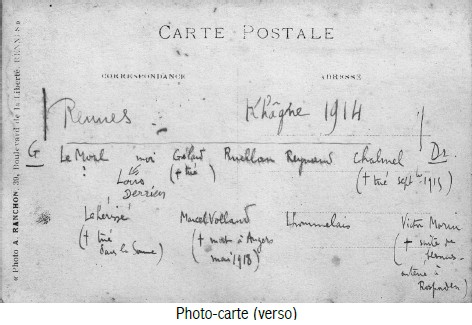 CARTE POSTALE
CORRESPONDANCE ADRESSE
Rennes Khâgne 1914
G Le Moal moi Gélard Ruellan Reynaud Chalmel Dr
? (+ tué) (+ tué septbre 1915)
Louis
Derrien
Marcel Volland Lhommelais Victor Morin
(+ tué (+ mort à Angers (+ suite de
dans la Somme) mai 1918)
à
Rosporden)
« Photo A. RANCHON, 30, Boulevard de la Liberté, RENNES »
Photo-carte (verso)